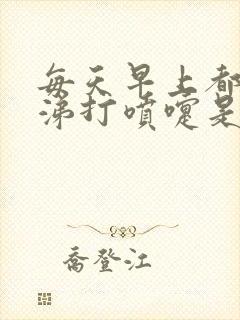 每天早上都
涕打喷嚏是
乔登江